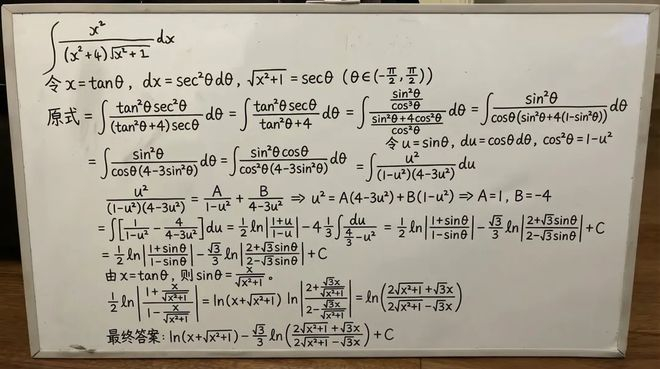 ∫ x²/((x²+4)√(x²+1)) dx
令 x = tanθ, dx = sec²θ dθ, √(x²+1) = secθ (θ∈(-π/2, π/2))
原式 = ∫ tan²θ sec²θ/((tan²θ+4) secθ) dθ = ∫ tan²θ secθ/(tan²θ+4) dθ = ∫ (sin²θ/cos³θ)/((sin²θ+4cos²θ)/cos²θ) dθ = ∫ sin²θ/(cosθ(sin²θ+4(1-sin²θ))) dθ
= ∫ sin²θ/(cosθ(4-3sin²θ)) dθ = ∫ sin²θ cosθ/(cos²θ(4-3sin²θ)) dθ = ∫ u²/((1-u²)(4-3u²)) du
令 u = sinθ, du = cosθ dθ, cos²θ = 1-u²
u²/((1-u²)(4-3u²)) = A/(1-u²) + B/(4-3u²) ⇒ u² = A(4-3u²) + B(1-u²) ⇒ A=1, B=-4
= ∫[1/(1-u²) - 4/(4-3u²)] du = 1/2 ln|(1+u)/(1-u)| - 4 1/3 ∫ du/(4/3-u²) = 1/2 ln|(1+sinθ)/(1-sinθ)| - √3/3 ln|(2+√3sinθ)/(2-√3sinθ)| + C
= 1/2 ln|(1+sinθ)/(1-sinθ)| - √3/3 ln|(2+√3sinθ)/(2-√3sinθ)| + C
由 x = tanθ, 则 sinθ = x/√(x²+1)。
1/2 ln|(1+x/√(x²+1))/(1-x/√(x²+1))| = ln(x+√(x²+1)) ln|(2+√3x/√(x²+1))/(2-√3x/√(x²+1))| = ln((2√(x²+1)+√3x)/(2√(x²+1)-√3x))
最终答案: ln(x+√(x²+1)) - √3/3 ln((2√(x²+1)+√3x)/(2√(x²+1)-√3x)) + C